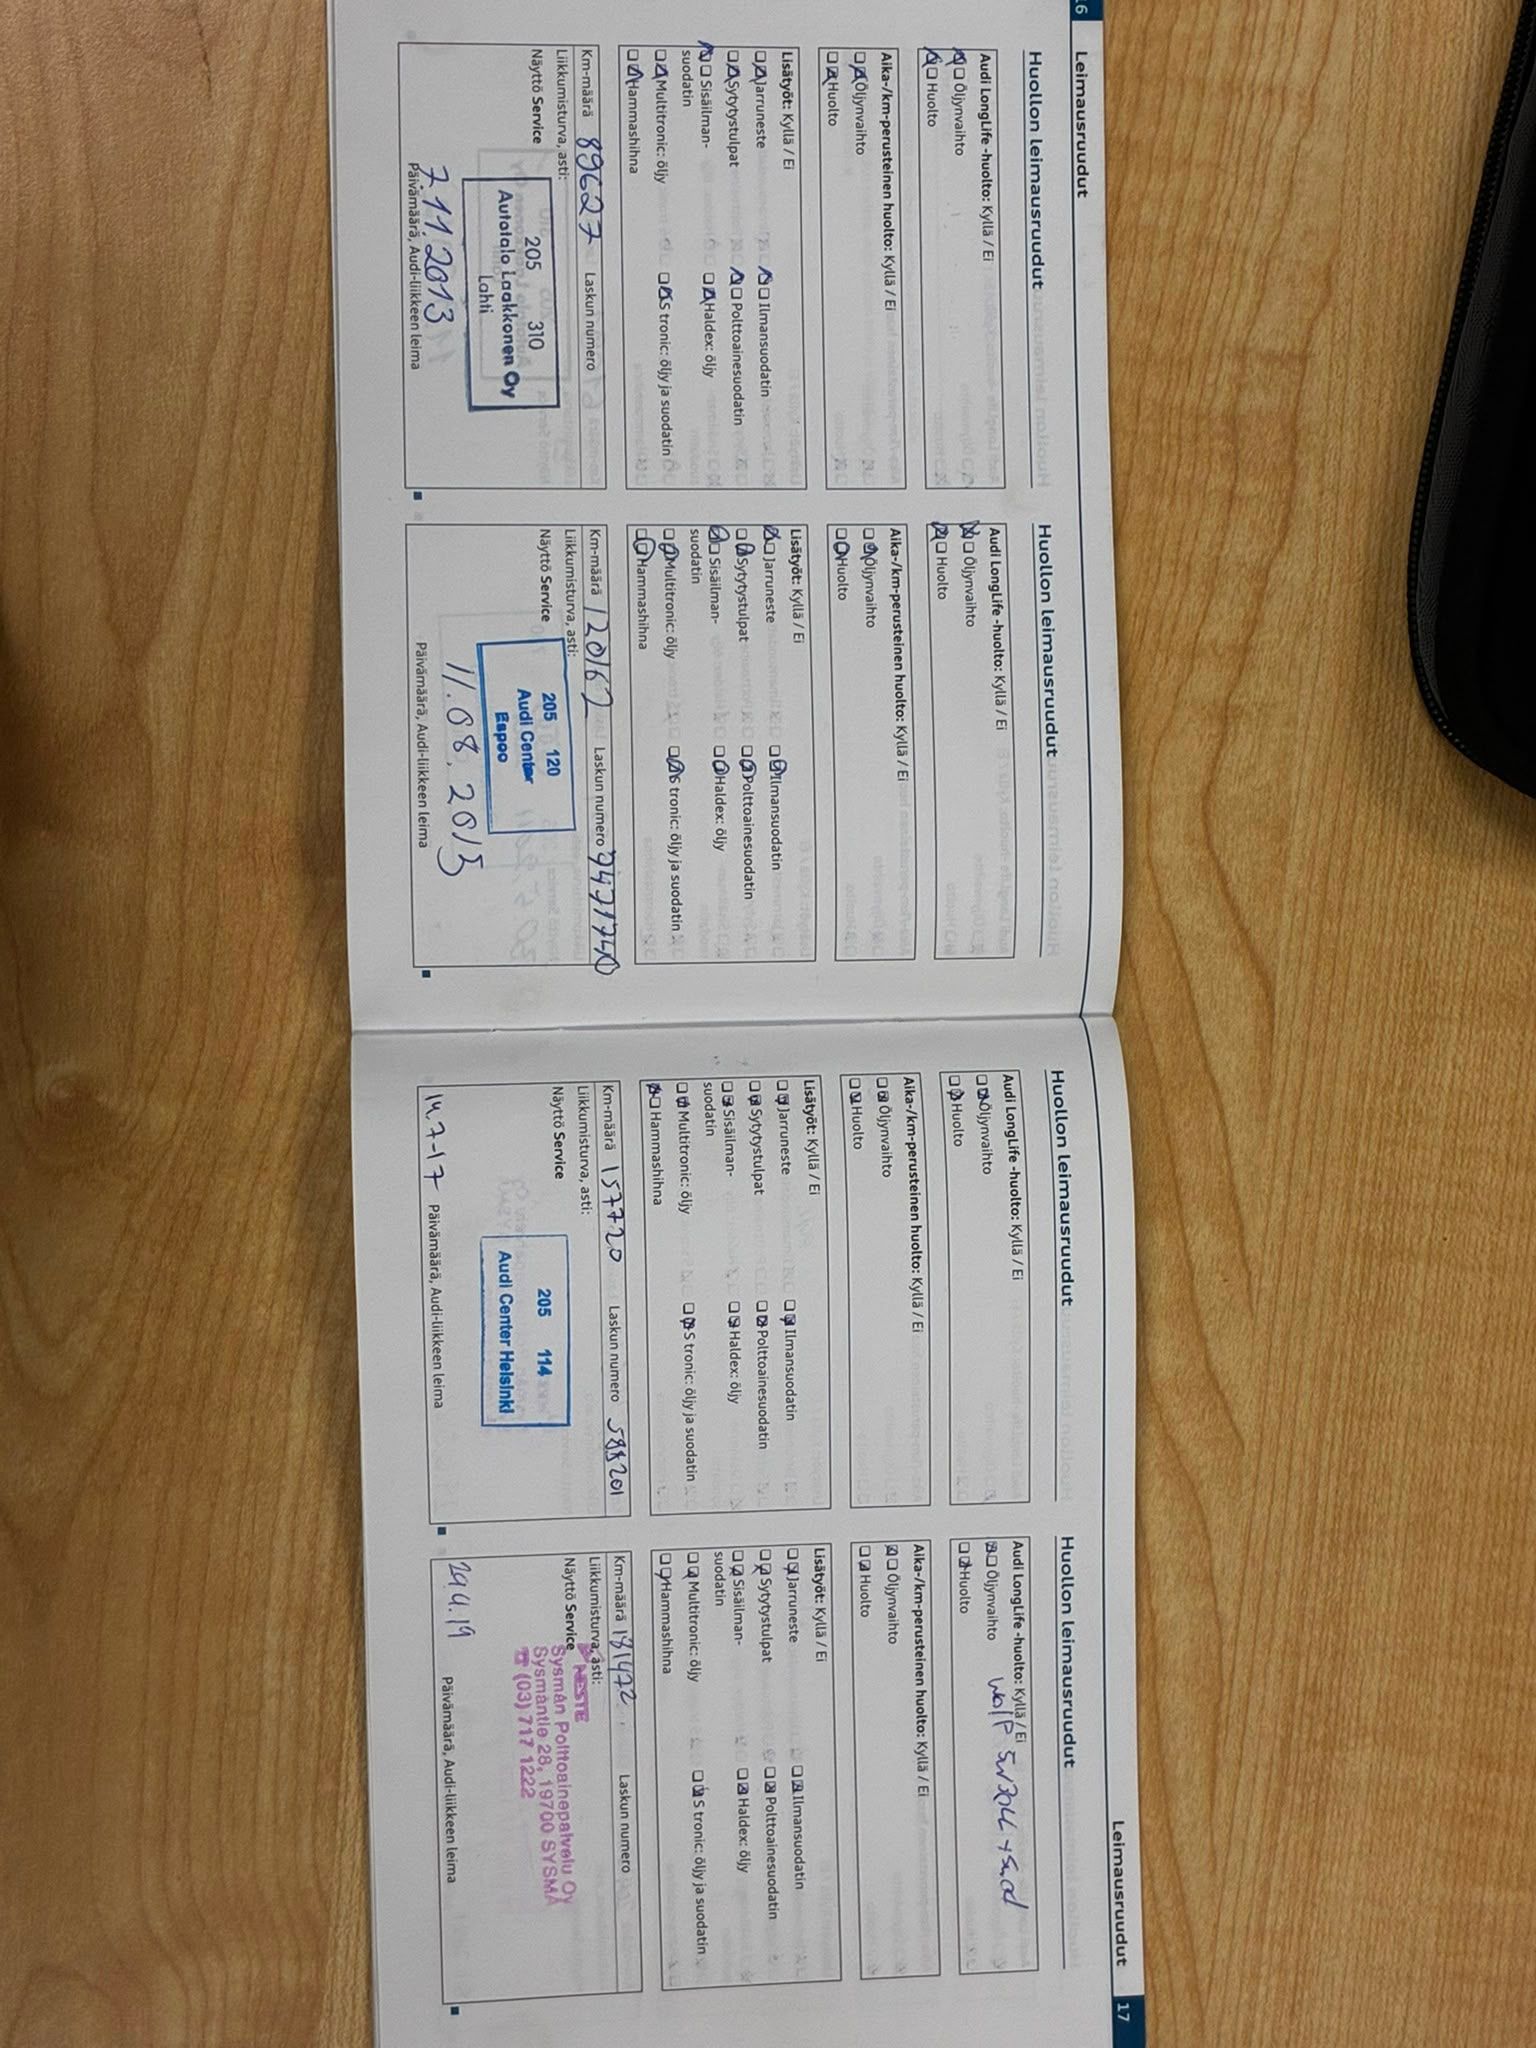 16
Leimausruudut
Huollon leimausruudut
Audi LongLife -huolto: Kyllä / Ei
Öljynvaihto
Huolto
Aika-/km-perusteinen huolto: Kyllä / Ei
Öljynvaihto
Huolto
Lisätyöt: Kyllä / Ei
Jarruneste Ilmansuodatin
Sytytystulpat Polttoainesuodatin
Sisäilman- Haldex: öljy
suodatin
Multitronic: öljy S tronic: öljy ja suodatin
Hammashihna
Km-määrä 89627 Laskun numero
Liikkumisturva, asti:
Näyttö Service
205 310
Autotalo Laakkonen Oy
Lahti
7.11.2013
Päivämäärä, Audi-liikkeen leima
Huollon leimausruudut
Audi LongLife -huolto: Kyllä / Ei
Öljynvaihto
Huolto
Aika-/km-perusteinen huolto: Kyllä / Ei
Öljynvaihto
Huolto
Lisätyöt: Kyllä / Ei
Jarruneste Ilmansuodatin
Sytytystulpat Polttoainesuodatin
Sisäilman- Haldex: öljy
suodatin
Multitronic: öljy S tronic: öljy ja suodatin
Hammashihna
Km-määrä 120162 Laskun numero
Liikkumisturva, asti:
Näyttö Service
205 120
Audi Center
Espoo
11.08.2015
Päivämäärä, Audi-liikkeen leima
Leimausruudut
17
Huollon leimausruudut
Audi LongLife -huolto: Kyllä / Ei
Öljynvaihto
Huolto
Aika-/km-perusteinen huolto: Kyllä / Ei
Öljynvaihto
Huolto
Lisätyöt: Kyllä / Ei
Jarruneste Ilmansuodatin
Sytytystulpat Polttoainesuodatin
Sisäilman- Haldex: öljy
suodatin
Multitronic: öljy S tronic: öljy ja suodatin
Hammashihna
Km-määrä 157720 Laskun numero 588201
Liikkumisturva, asti:
Näyttö Service
205 114
Audi Center Helsinki
14.7-17 Päivämäärä, Audi-liikkeen leima
Huollon leimausruudut
Audi LongLife -huolto: Kyllä / Ei
Öljynvaihto Wolf 5w30LL + Suod
Huolto
Aika-/km-perusteinen huolto: Kyllä / Ei
Öljynvaihto
Huolto
Lisätyöt: Kyllä / Ei
Jarruneste Ilmansuodatin
Sytytystulpat Polttoainesuodatin
Sisäilman- Haldex: öljy
suodatin
Multitronic: öljy S tronic: öljy ja suodatin
Hammashihna
Km-määrä 181472 Laskun numero
Liikkumisturva, asti:
Näyttö Service
NESTE
Sysmän Polttoainepalvelu Oy
Sysmäntie 28, 19700 SYSMÄ
☎ (03) 717 1222
29.4.19
Päivämäärä, Audi-liikkeen leima